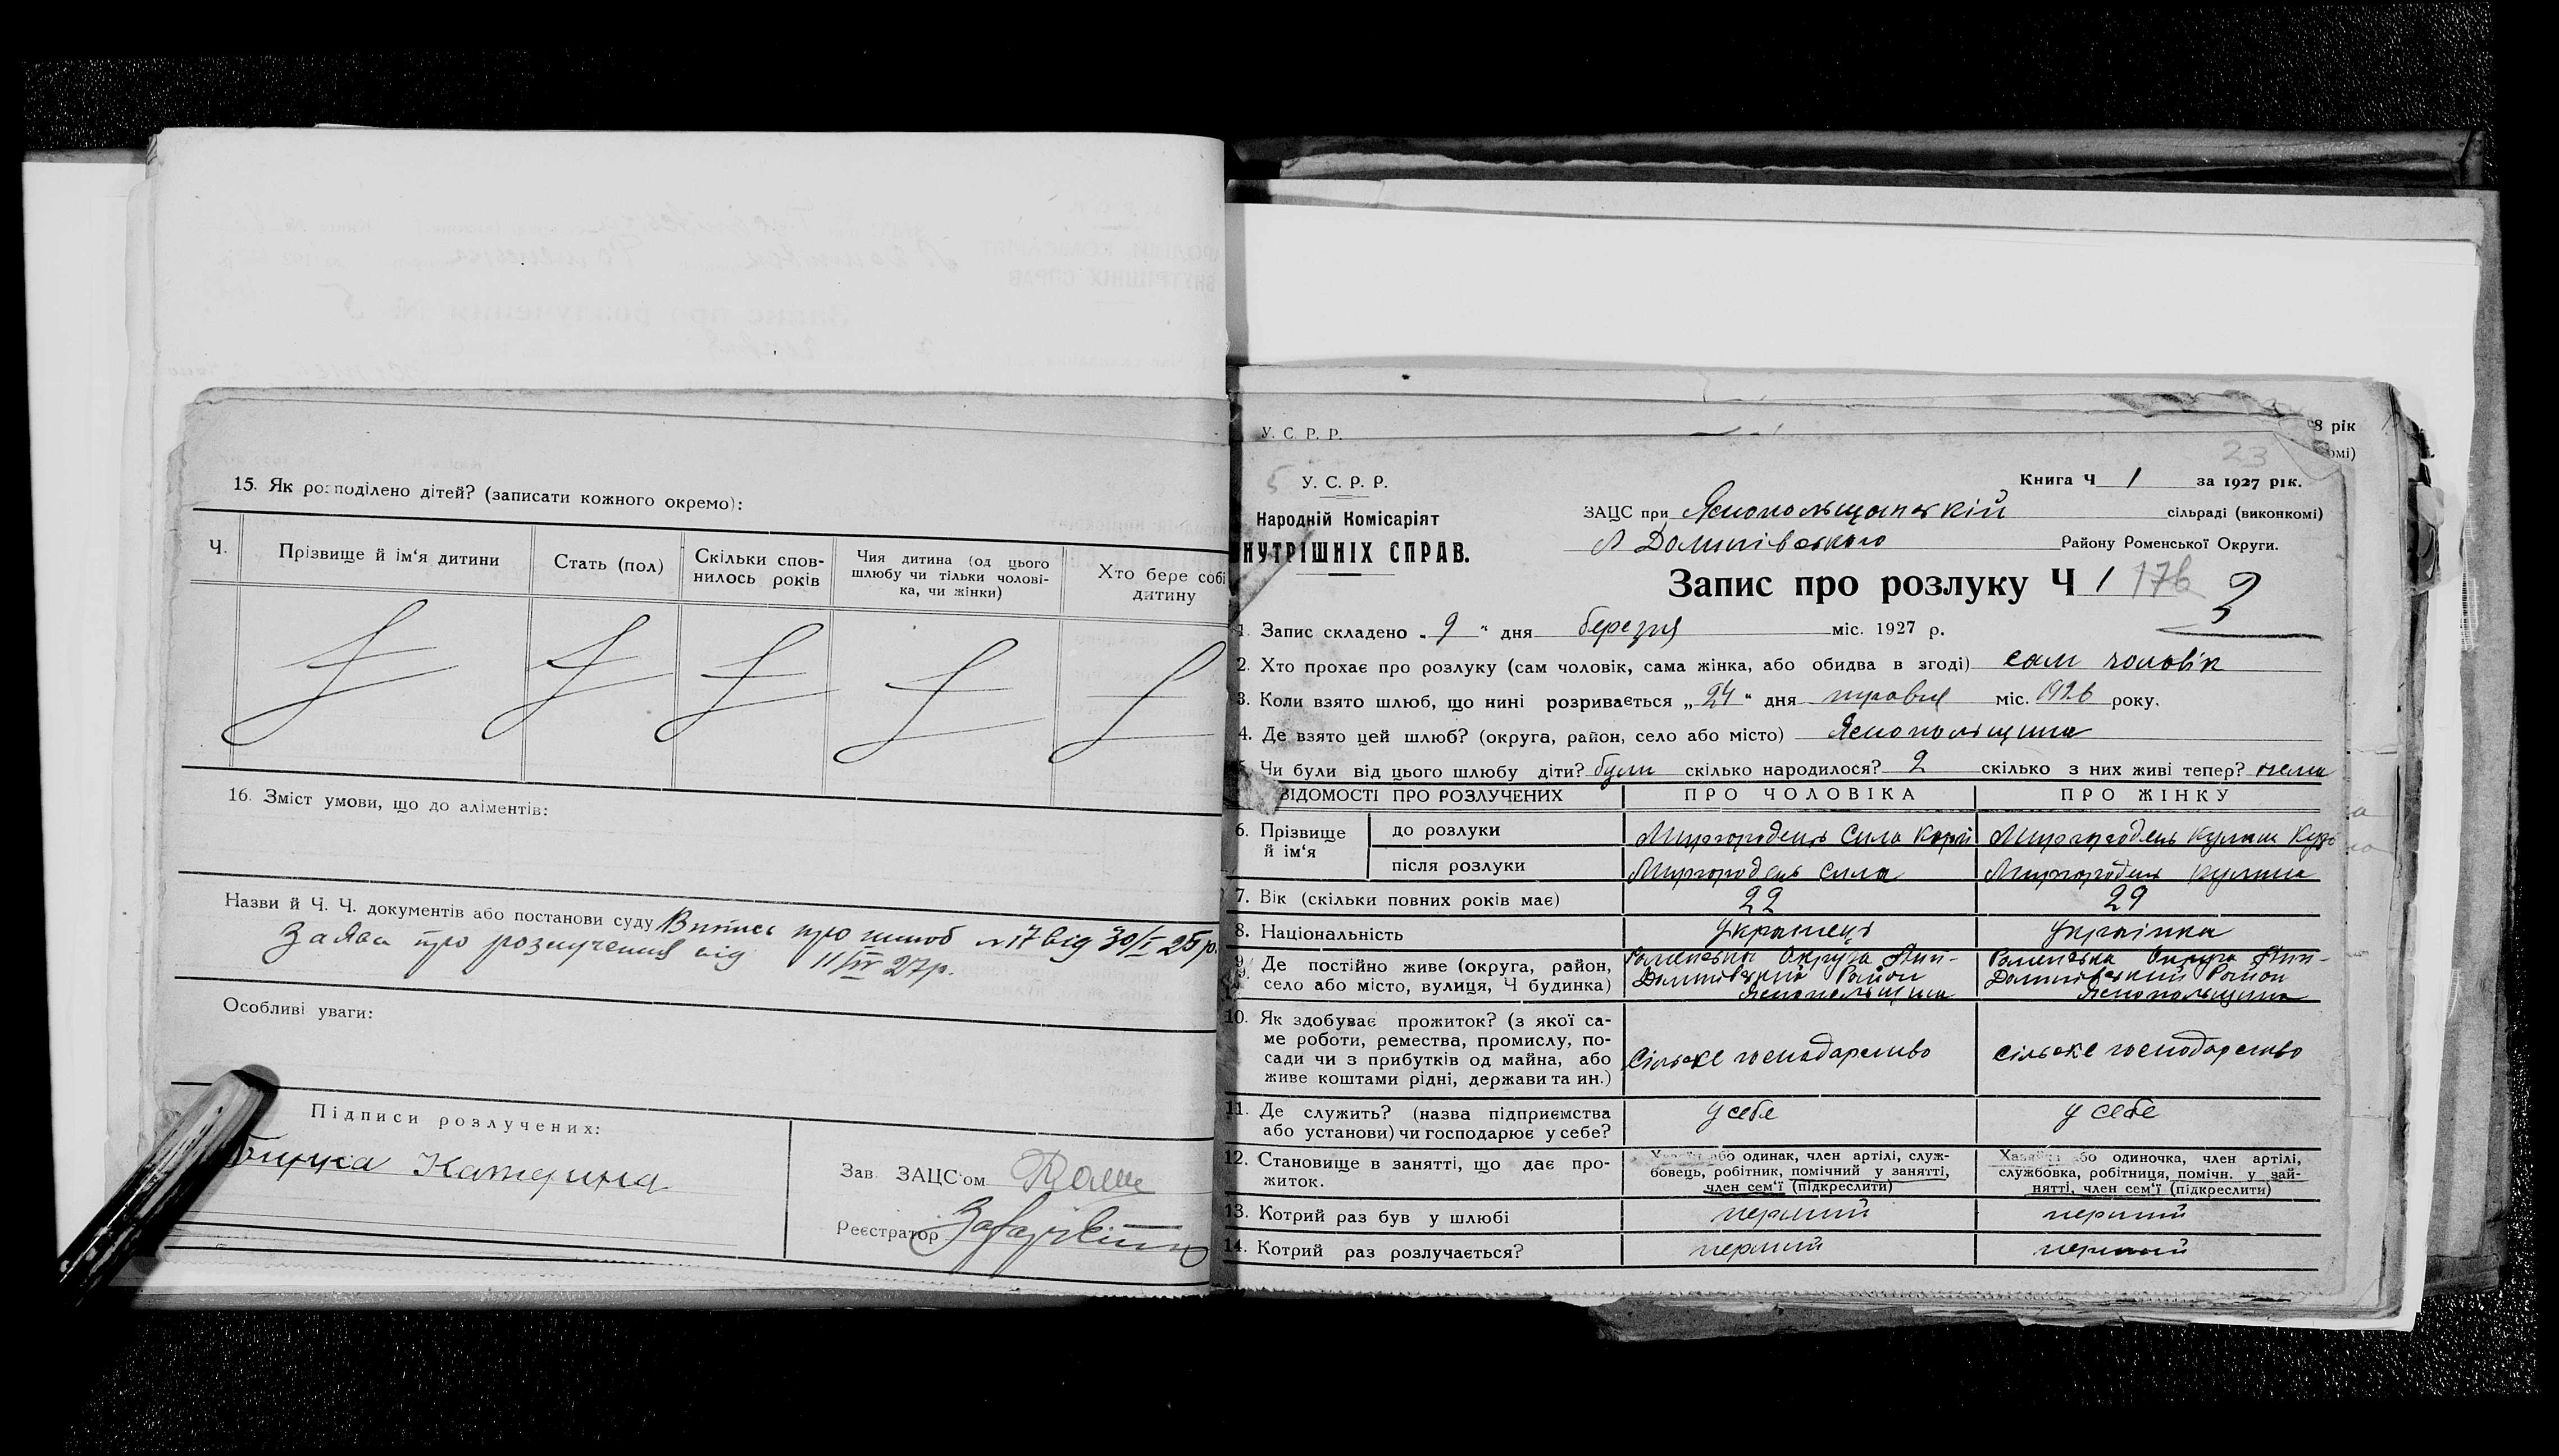 15. Як розподілено дітей? (записати кожного окремо):
Ч.
Прізвище й ім'я дитини
Стать (пол)
Скільки спов-
нилось років
Чия дитина (од цього
шлюбу чи тільки чолові-
ка, чи жінки)
Хто бере собі
дитину
16. Зміст умови, що до аліментів:
Назви й Ч. Ч. документів або постанови суду Витяг про шлюб № 17 від 30/I 25 р.
Заява про розлучення від 11/IV 27 р.
Особливі уваги:
Підписи розлучених:
Катерина
Зав. ЗАЦС'ом
Реєстратор
У. С. Р. Р.
8 рік
омі)
23
5
У. С. Р. Р.
Народній Комісаріят
НУТРІШНІХ СПРАВ.
Книга Ч 1 за 1927 рік.
ЗАЦС при Яснопольщанській сільраді (виконкомі)
Л Долинівського Району Роменської Округи.
Запис про розлуку Ч 1 176 2
1. Запис складено „9“ дня березня міс. 1927 р.
2. Хто прохає про розлуку (сам чоловік, сама жінка, або обидва в згоді) сам чоловік
3. Коли взято шлюб, що нині розривається „24“ дня травня міс. 1926 року.
4. Де взято цей шлюб? (округа, район, село або місто) Яснопольщина
Чи були від цього шлюбу діти? були скілько народилося? 2 скілько з них живі тепер? нема
ВІДОМОСТІ ПРО РОЗЛУЧЕНИХ
ПРО ЧОЛОВІКА
ПРО ЖІНКУ
6. Прізвище
й ім'я
до розлуки
Миргородець Сила
Миргородець Кулина
після розлуки
Миргородець Сила
Миргородець Кулина
7. Вік (скільки повних років має)
22
29
8. Національність
Українець
Українка
9. Де постійно живе (округа, район,
село або місто, вулиця, Ч будинка)
Роменська Округа
Район
Яснопольщина
Роменська Округа
Район
Яснопольщина
10. Як здобуває прожиток? (з якої са-
ме роботи, ремества, промислу, по-
сади чи з прибутків од майна, або
живе коштами рідні, держави та ин.)
Сільске господарство
сільске господарство
11. Де служить? (назва підприємства
або установи) чи господарює у себе?
у себе
у себе
12. Становище в занятті, що дає про-
житок.
або одинак, член артілі, служ-
бовець, робітник, помічний у занятті,
член сем'ї (підкреслити)
Хазяйка або одиночка, член артілі,
службовка, робітниця, помічн. у зай-
нятті, член сем'ї (підкреслити)
13. Котрий раз був у шлюбі
перший
перший
14. Котрий раз розлучається?
перший
перший